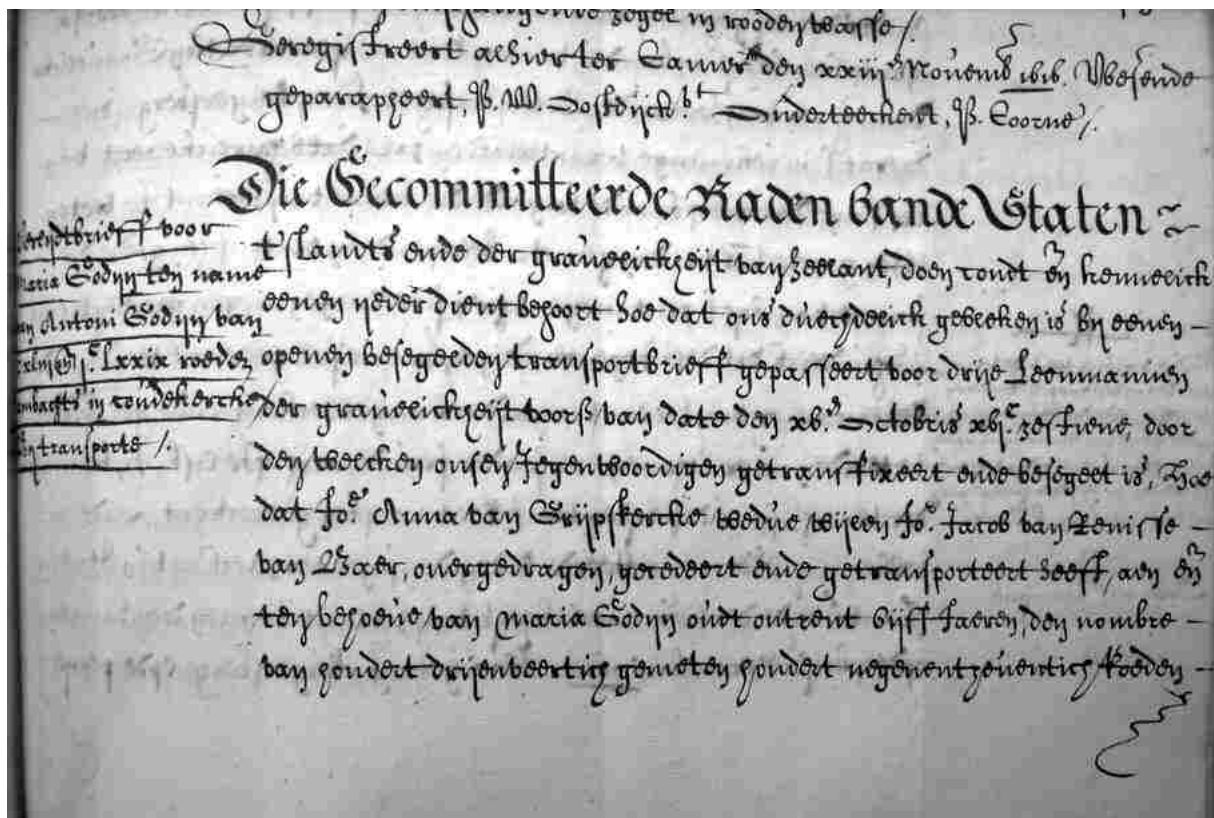 zegel in rooden wasse /.
Geregistreert alhier ter Camer den xxiij Novemb 1616. Wesende
geparapheert, P. W. Oostdijck. Onderteeckent, P. Coorne /.
Die Gecommitteerde Raden vande Staten ~
t'slandts ende der graüelickheijt van Zeelant, doen condt eñ kennelick
eenen ijeder dient behoort hoe dat ons düechdelick gebleken is bij eenen –
openen besegelden transportbrieff gepasseert voor drije Leenmannen
der graüelickheijt voors van date den xv. Octobris xvj.c zestiene, door
den welcken onsen Jegenwoordigen getransfixeert ende besegelt is, Hoe
dat Jo.e Anna van Grijpskercke wedüe wijlen Jo.r Jacob van Renisse –
van Baer, overgedragen, gecedeert ende getransporteert heeft, aen eñ
ten behoeüe van Maria Godijn oüdt ontrent vijff Jaeren, den nombre –
van hondert drijenveertich gemeten hondert negenentzeüentich Roeden –
brieff voor
Maria Godijn ten name
van Antoni Godijn van
j.c Lxxix roeden
ambachts in coüdekercke
transporte /.